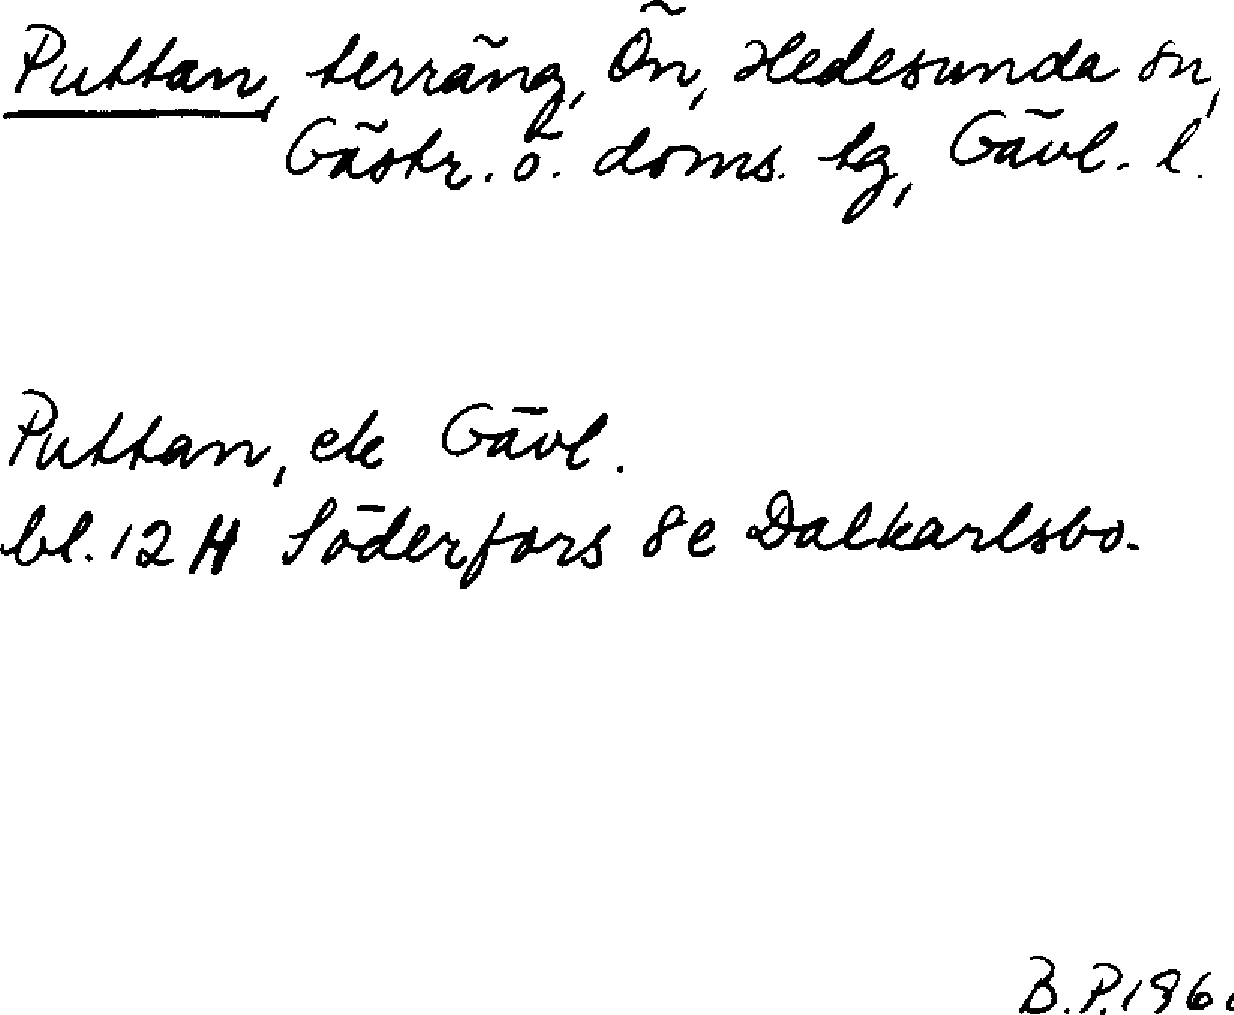 Puttan, terräng, Ön, Hedesunda sn,
Gästr. ö. doms. tg, Gävl. l.
Puttan, ek Gävl.
bl. 12 H Söderfors 8e Dalkarlsbo.
B.P. 196